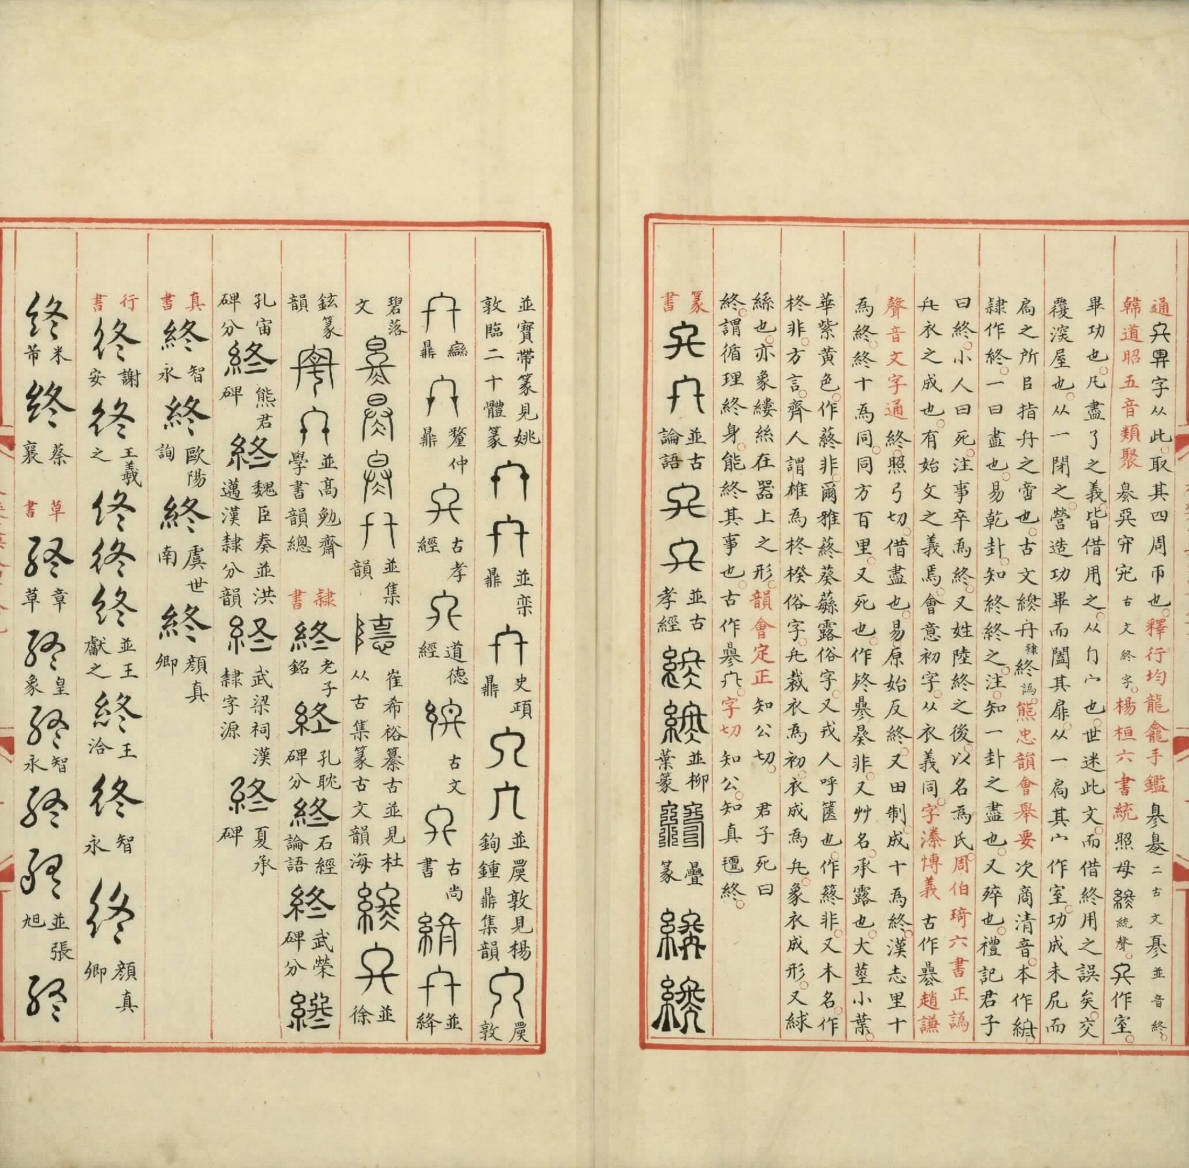 通𠔾𢍏字从此。取其四周帀也。釋行均龍龕手鑑 二古文 並音終。
韓道昭五音類聚 古文終字。楊桓六書統 照母 統聲。作室
畢功也。凡盡了之義皆借用之。从冂宀也。世迷此文。而借終用之誤矣。交
覆深屋也。从一閉之。營造功畢而闔其扉。从一扃其宀作室。功成未凥而
扃之所㠯指之也。古文 隸終譌。熊忠韻會舉要 次商清音。本作
隸作終。一曰盡也。易乾卦。知終終之。注。知一卦之盡也。又殍也。禮記君子
曰終。小人曰死。注事卒為終。又姓陸終之後。以名為氏。周伯琦六書正譌
衣之成也。有始夂之義焉。會意初字。从衣義同。字溱愽義 古作 趙謙
聲音文字通 終。照弓切。借盡也。易原始反終。又田制。成十為終。漢志里十
為終。終十為同。同方百里。又死也。作非。又艸名。承露也。大莖小葉。
華紫黄色。作蔠非。爾雅蔠葵蘩露俗字。又戎人呼篋也。作䈺非。又木名。作
柊非。方言。齊人謂椎為柊楑俗字。裁衣為初。衣成為。象衣成形。又絿
絲也。亦象縷絲在器上之形。韻會定正 知公切。 君子死曰
終。謂循理終身。能終其事也古作 字切 知公。知真邅終。
篆書 並古論語 並古孝經 並柳葉篆 疊篆
並寶帶篆見姚敦臨二十體篆 並欒鼎 史頊鼎 並㬅敦見楊鉤鍾鼎集韻 㬅敦
䜌鼎 釐仲鼎 古孝經 道德經 古文 古尚書 並絳
碧落文 並集韻 崔希裕纂古並見杜从古集篆古文韻海 並徐
鉉篆韻 並高勉齋學書韻總 隸書 終 老子銘 終 孔耽碑分 終 石經論語 終 武榮碑分
孔宙碑分 終 熊君碑 終 魏臣奏並洪邁漢隸分韻 終 武梁祠漢隸字源 終 夏承碑
真書 終 智永 終 歐陽詢 終 虞世南 終 顏真卿
行書 終 謝安 終 王羲之 終 終 終 並王獻之 終 王洽 終 智永 終 顏真卿
終 米芾 終 蔡襄 草書 終 章草 終 皇象 終 智永 終 終 並張旭 終